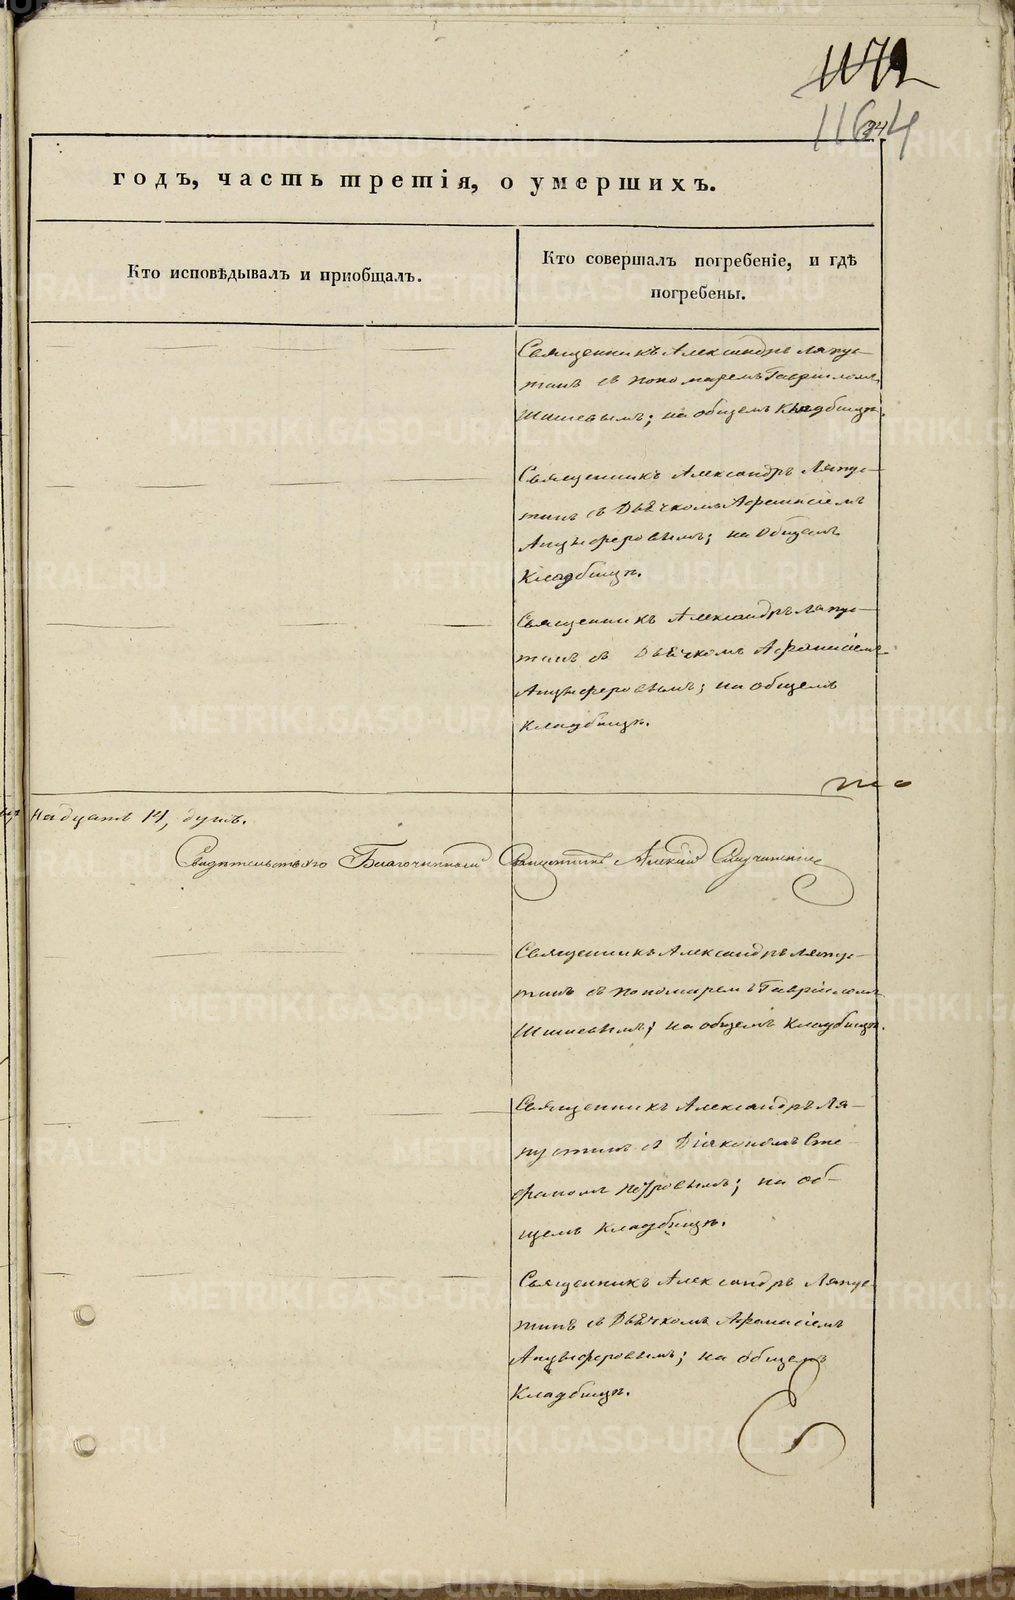 1164
годъ, часть третія, о умершихъ.
Кто исповѣдывалъ и пріобщалъ.
Кто совершалъ погребеніе, и гдѣ
погребены.
Священникъ Александръ Ляпус-
тинъ съ пономаремъ Гавріиломъ
Шишевымъ; на общемъ кладбищѣ.
Священникъ Александръ Ляпус-
тинъ съ Дьячкомъ Афанасіемъ
Анцыферовымъ; на общемъ
кладбищѣ.
Священникъ Александръ Ляпус-
тинъ съ Дьячкомъ Афанасіемъ
Анцыферовымъ; на общемъ
кладбищѣ.
надцать 14, душъ.
Свидетельствовалъ Благочинный Священникъ Алексій
Священникъ Александръ Ляпус-
тинъ съ пономаремъ Гавріиломъ
Шишевымъ; на общемъ кладбищѣ.
Священникъ Александръ Ля-
пустинъ съ Діакономъ Сте-
фаномъ Петровымъ; на об-
щемъ кладбищѣ.
Священникъ Александръ Ляпус-
тинъ съ Дьячкомъ Афанасіемъ
Анцыферовымъ; на общемъ
кладбищѣ.
METRIKI.GASO-URAL.RU